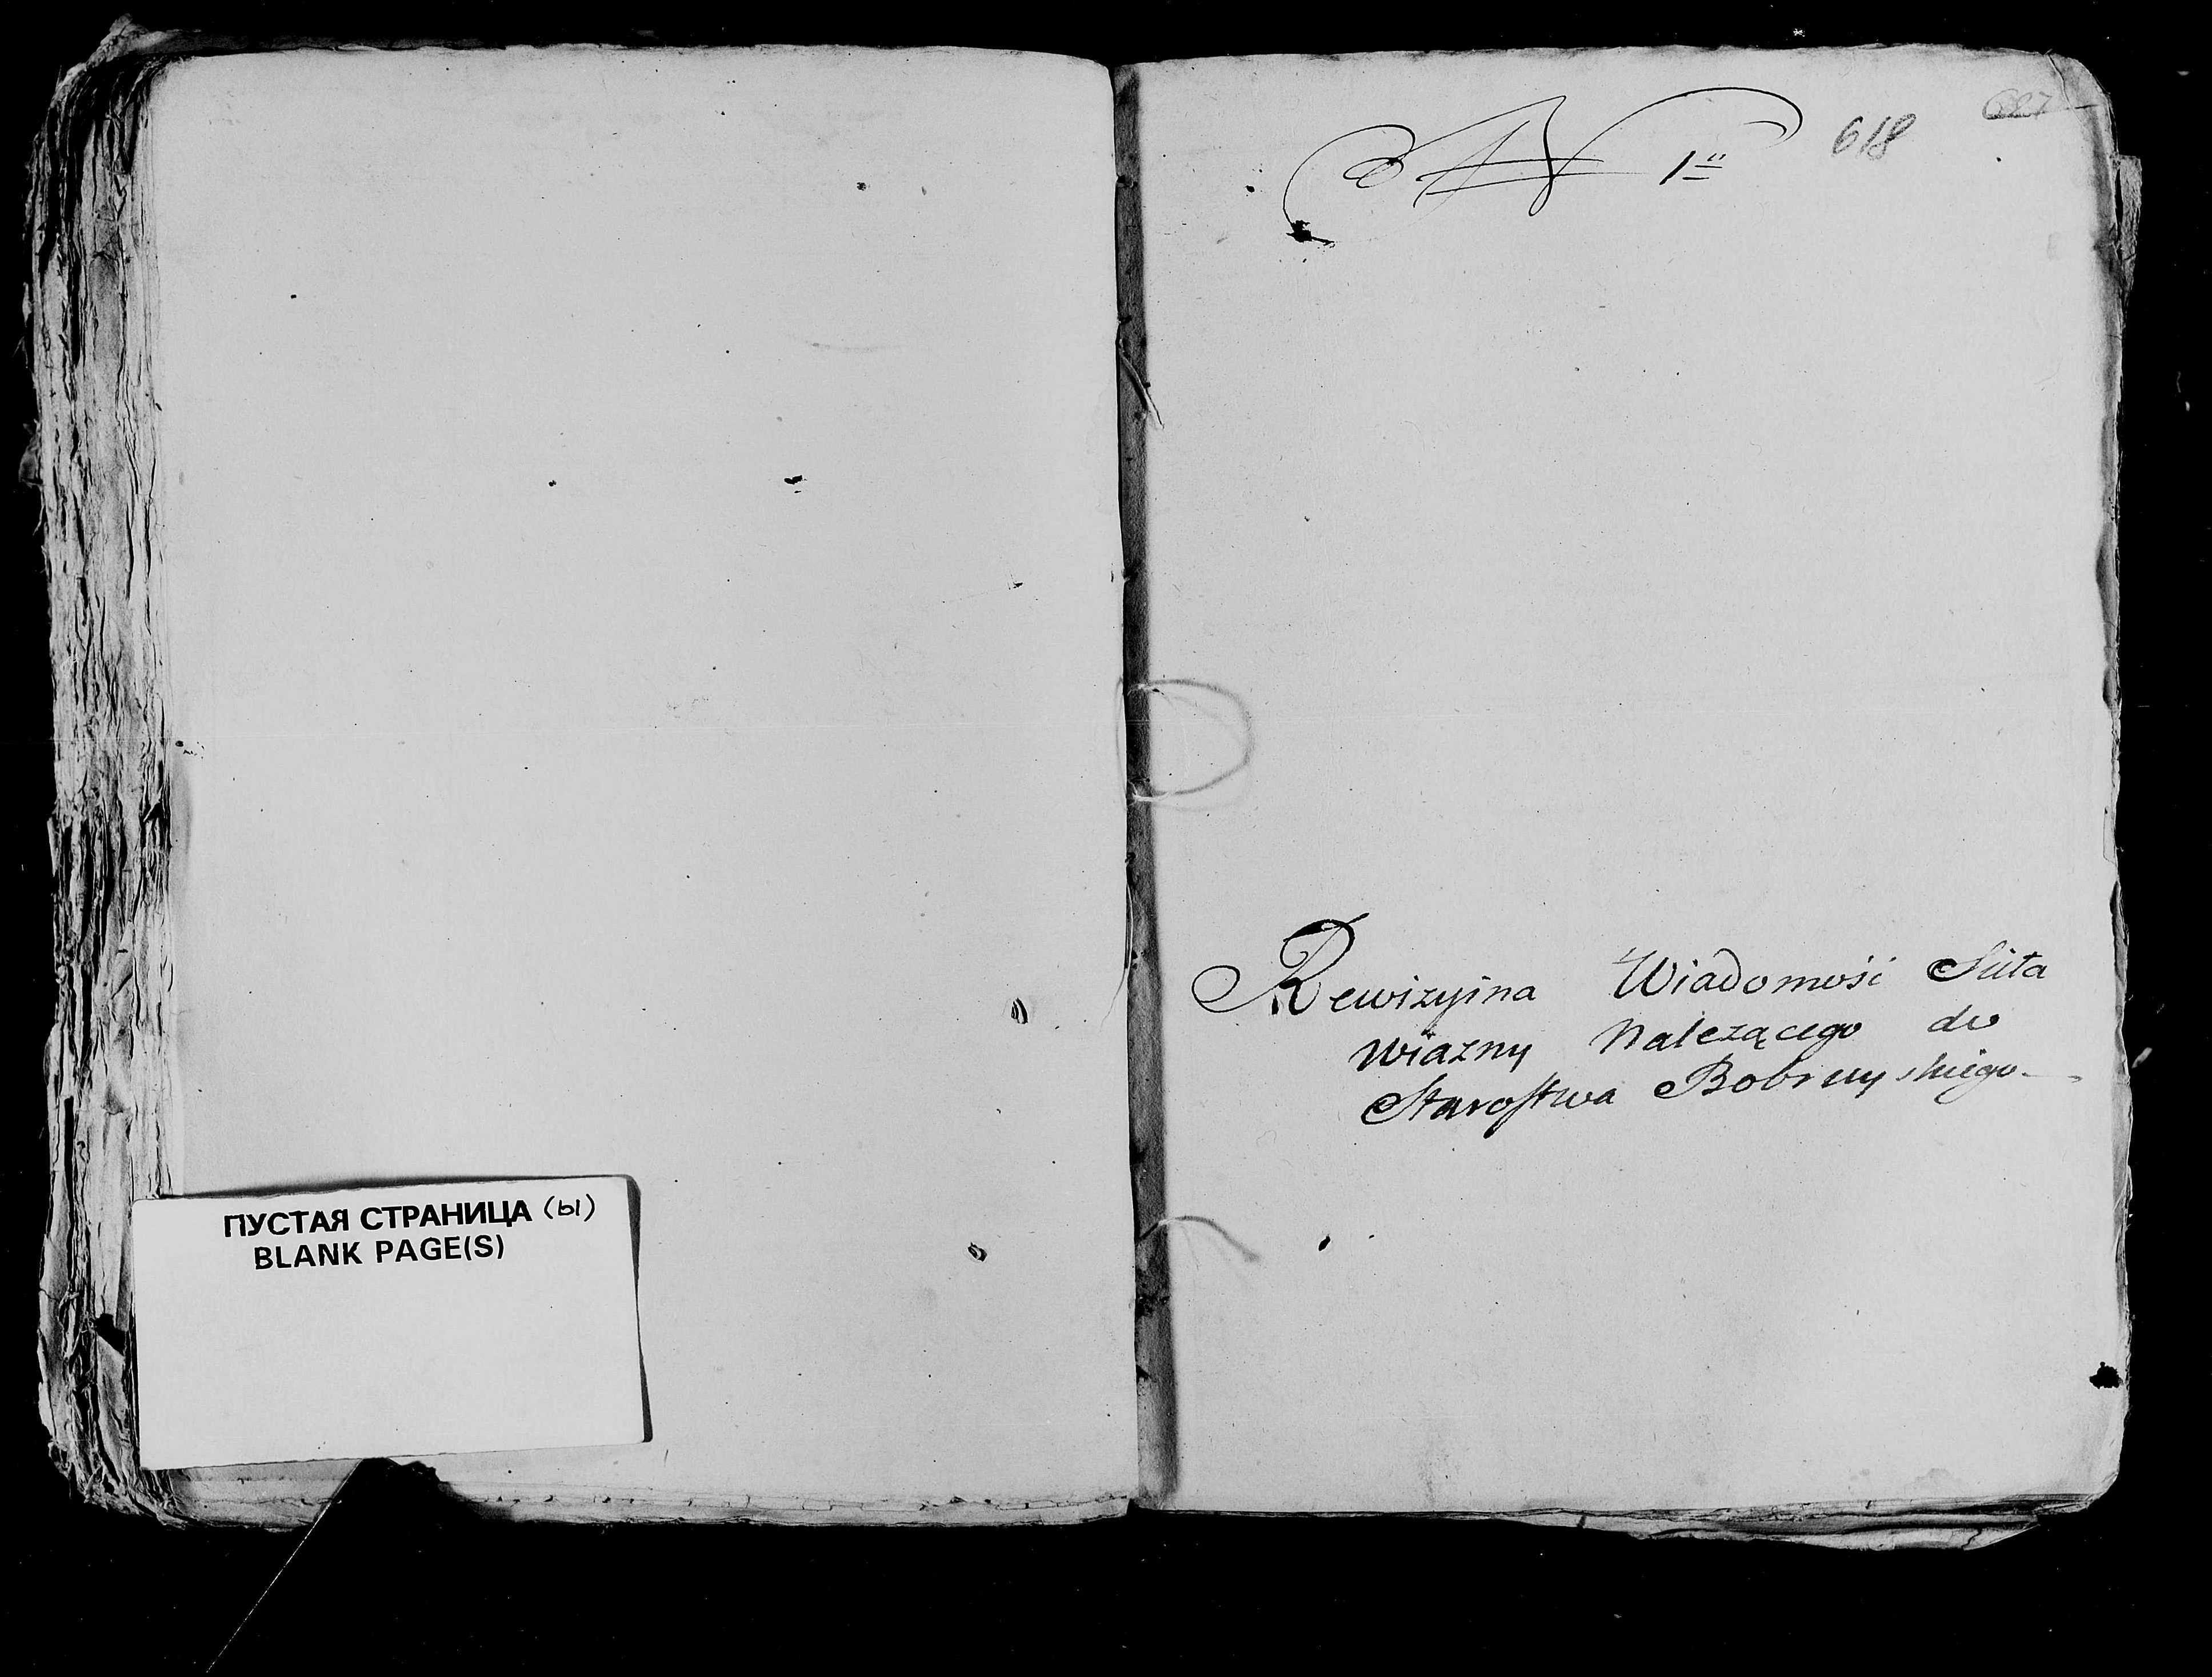 ПУСТАЯ СТРАНИЦА (ы)
BLANK PAGE(S)
618
N 1
Rewizyina Wiadomość Siıła
Wiazny Nalezącego do
Starostwa Bobruyskiego